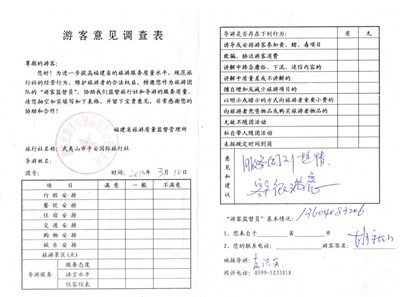 游客意见调查表
尊敬的游客：
您好！为进一步提高福建省的旅游服务质量水平，规范旅行社的经营行为，维护旅游者的合法权益，特邀您作为旅游团队的“游客监督员”，协助我们监督旅行社和导游的服务质量。请您抽空如实填写如下表格，并留下宝贵意见，非常感谢您的协助和合作！
福建省旅游质量监督管理所
旅行社名称：武夷山市平安国际旅行社
导游姓名：
团号：
时间：2012年3月10日
项 目 满意 一般 不满意
行程安排
餐饮安排
住宿安排
交通安排
购物安排
娱乐安排
旅游景区(点)
导游服务
服务态度
语言水平
仪容仪表
导游是否存在下列行为： 有 无
诱导或安排游客参加黄、赌、毒项目
欺骗、胁迫游客消费
讲解中掺杂庸俗、下流、迷信的内容
讲解中质量差或不讲解的
擅自增加或减少旅游项目的
以明示或暗示的方式向旅游者索要小费的
向旅游者兜售物品或购买旅游者物品的
无故不随团活动
私自带人随团活动
未按规定时间到岗
意见和建议
服务周到热情
“游客监督员”基本情况：
1、您来自于 省 市
2、您的联系电话：
游客签名：
地接导游：
投诉电话：0599-5233018